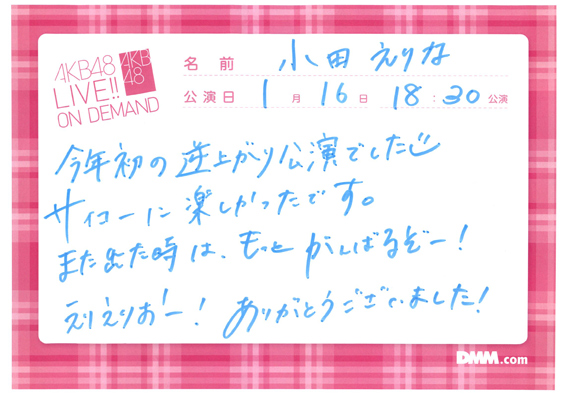 AKB48
LIVE!!
ON DEMAND
AKB
48
名前 小田えりな
公演日 1月16日 18:30公演
今年初の逆上がり公演でした
サイコーに楽しかったです。
また出た時は、もっとがんばるぞー!
えりえりおー! ありがとうございました!
DMM.com